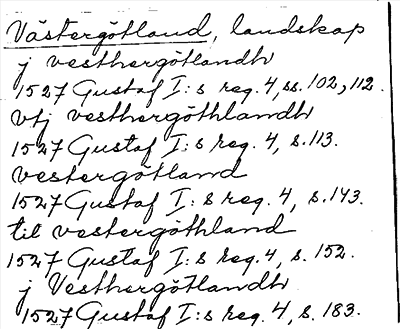 Västergötland, landskap
j vesthergötlandh
1527 Gustaf I:s reg. 4, ss. 102, 112.
vtj vesthergöthlandh
1527 Gustaf I:s reg. 4, s. 113.
vestergötland
1527 Gustaf I:s reg. 4, s. 143.
til vestergöthland
1527 Gustaf I:s reg. 4, s. 152.
j Vesthergötlandh
1527 Gustaf I:s reg. 4, s. 183.